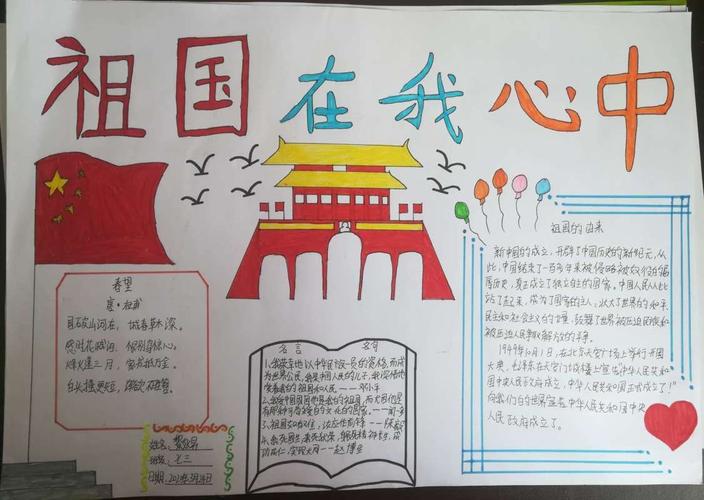 祖国在我心中
春望
唐·杜甫
国破山河在，城春草木深。
感时花溅泪，恨别鸟惊心。
烽火连三月，家书抵万金。
白头搔更短，浑欲不胜簪。
姓名:
班级: 七三
日期:
名言 名句
1.我荣幸地以中华民族一员的资格，而成
为世界公民。我是中国人民的儿子，我深情地
爱着我的祖国和人民——邓小平
3.祖国如有难，
祖国的由来
新中国的成立，开辟了中国历史的新纪元，从
此，中国结束了一百多年来被侵略被奴役的屈
辱历史，真正成了独立自主的国家。中国人民从此
站了起来，成为了国家的主人，壮大了世界的和平
民主和社会主义的力量，鼓舞了世界被压迫民族和
被压迫人民争取解放的斗争。
1949年10月1日，在北京天安门广场上举行开国
大典，毛泽东在天安门城楼上宣告"中华人民共和
国中央人民政府成立，中华人民共和国正式成立了！"
向我们的世界宣告，中华人民共和国中央
人民政府成立了。